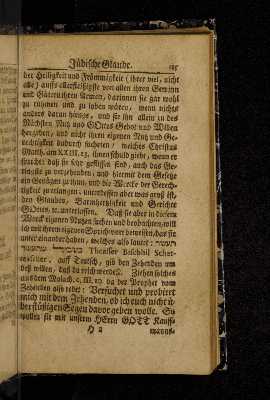 Jüdische Glaube. 115
der Heiligkeit und Frömmigkeit (ihrer viel, nicht
alle) auffs allerfleissigste von allen ihren Gewinn
und Gütern ihren Armen, darinnen sie gar wohl
zu rühmen und zu loben wären, wenn nichts
anders daran hienge, und sie ihn allein zu des
Nächsten Nutz und GOttes Gebot und Willen
hergeben, und nicht ihren eigenen Nutz und Ge-
rechtigkeit dadurch sucheten: welches Christus
Matth. am XXIII. 23. ihnen schuld giebt, wenn er
spricht: daß sie sehr geflissen sind, auch das Ge-
ringste zu verzehenden, und hiermit dem Gesetz
ein Genügen zu thun, und die Wercke der Gerech-
tigkeit zu erlangen: unterdessen aber was groß ist,
den Glauben, Barmhertzigkeit und Gerichte
GOttes, u. unterlassen. Daß sie aber in diesem
Werck eigenen Nutzen suchen und beobachten, will
ich mit ihrem eigenen Spruch beweisen, das sie
unter einander haben, welches also lautet: תעשר
בשביל שתתעשר Theasser Bischbil Schet-
auff Teutsch, gib den Zehenden um
deß willen, daß du reich werdest. Ziehen solches
aus dem Malach. c. III. 10. da der Prophet vom
Zehenden also redet: Versuchet und probiret
mich mit dem Zehenden, ob ich euch nicht ü-
berflüßigen Segen davor geben wolle. So
wollen sie mit unserm HErrn GOTT Kauff-
H 2 manns-